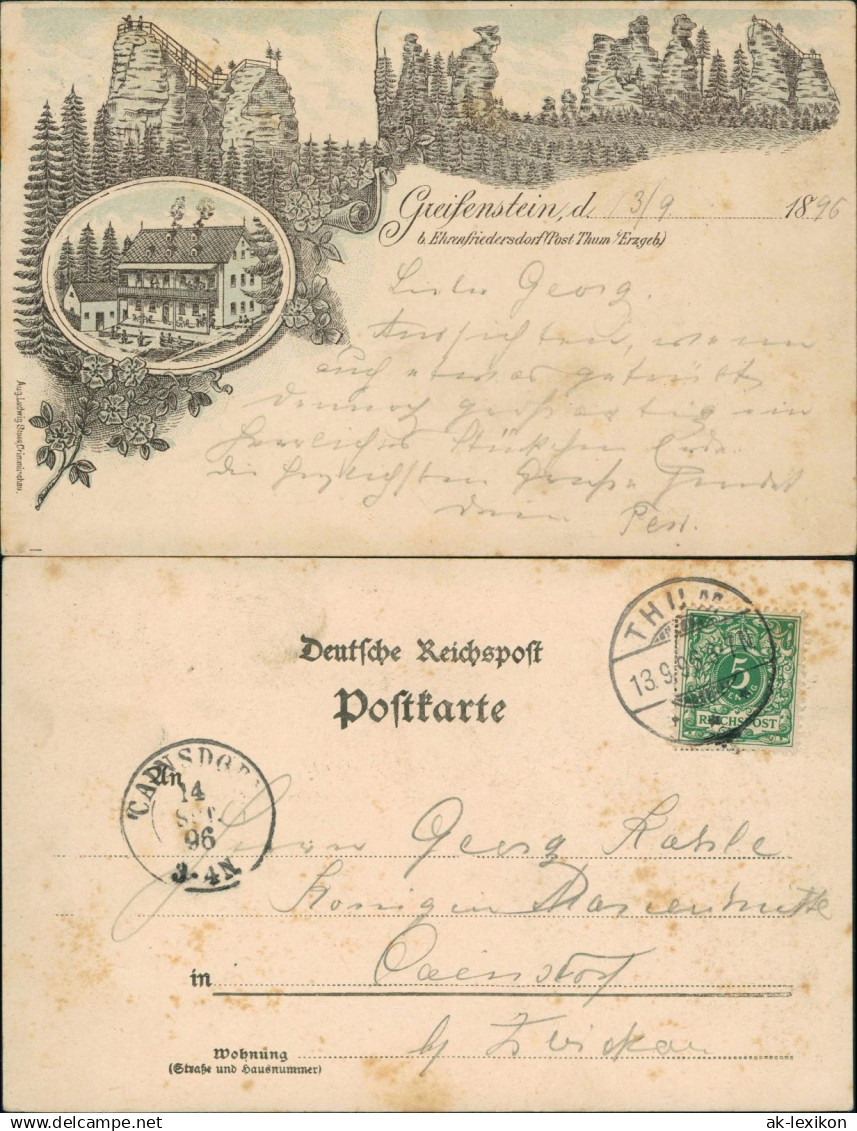 Greifenstein, d. 13/9 1896
b. Ehrenfriedersdorf (Post Thum i/Erzgeb)
Lieber Georg.
Aussichten, wenn
auch etwas getrübt
dennoch großartig ein
herrliches Stückchen Erde.
die herzlichsten Grüße sendet
dein
Aug. Ludwig Stuss, Crimmitschau.
Deutsche Reichspost
Postkarte
THUM
13.9.96
5
REICHSPOST
CAINSDORF
14
SEP.
96
3-4N
An
Herrn Georg Kahle
Königin Marienhütte
in Cainsdorf
b/ Zwickau
Wohnung
(Straße und Hausnummer)
ak-lexikon